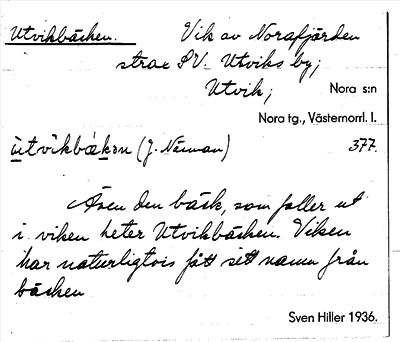 Utvikbäcken. Vik av Norafjärden
strax SV. Utviks by;
Utvik; Nora s:n
Nora tg., Västernorrl. l.
ùtvikbɛkən (J. Näsman) 377.
Även den bäck, som faller ut
i viken heter Utvikbäcken. Viken
har naturligtvis fått sitt namn från
bäcken
Sven Hiller 1936.